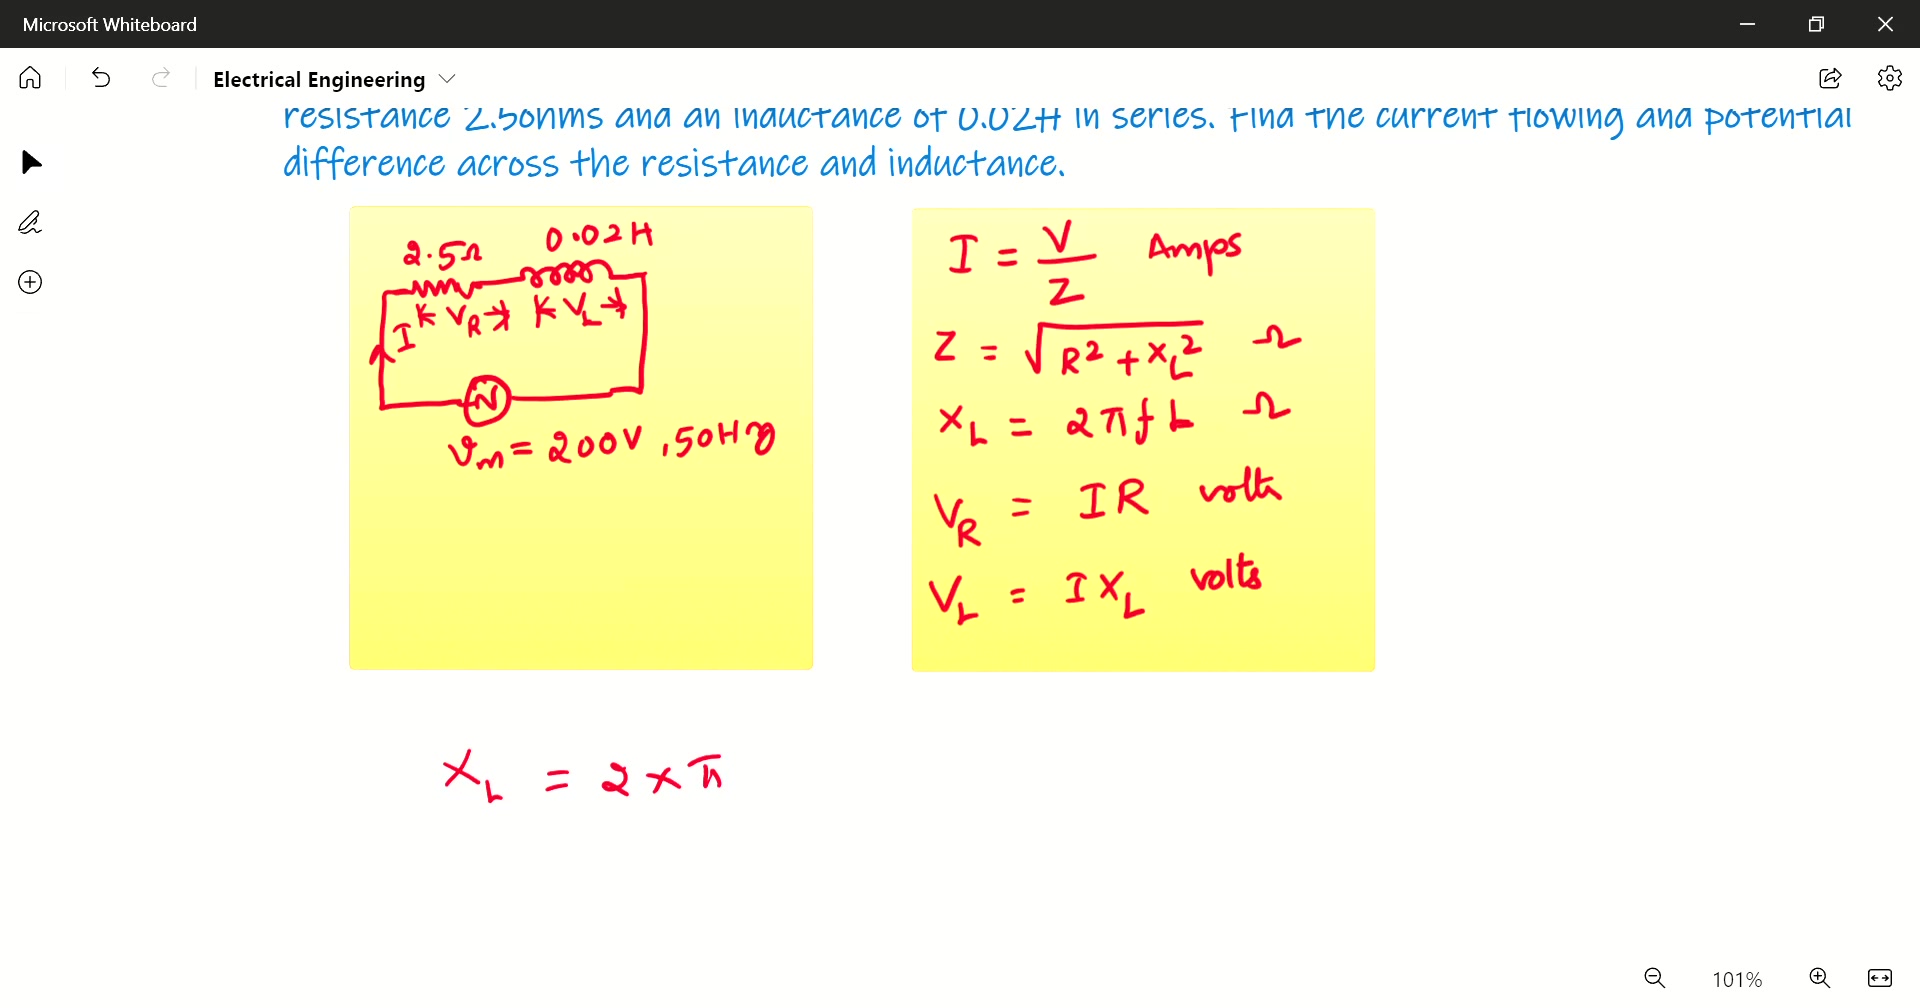 Microsoft Whiteboard
Electrical Engineering
resistance 2.5ohms and an inductance of 0.02H in series. Find the current flowing and potential
difference across the resistance and inductance.
2.5Ω 0.02H
I V_R V_L
v_m = 200V, 50Hz
I = V/Z Amps
Z = √(R² + X_L²) Ω
X_L = 2πfL Ω
V_R = IR volts
V_L = IX_L volts
X_L = 2 × π
101%